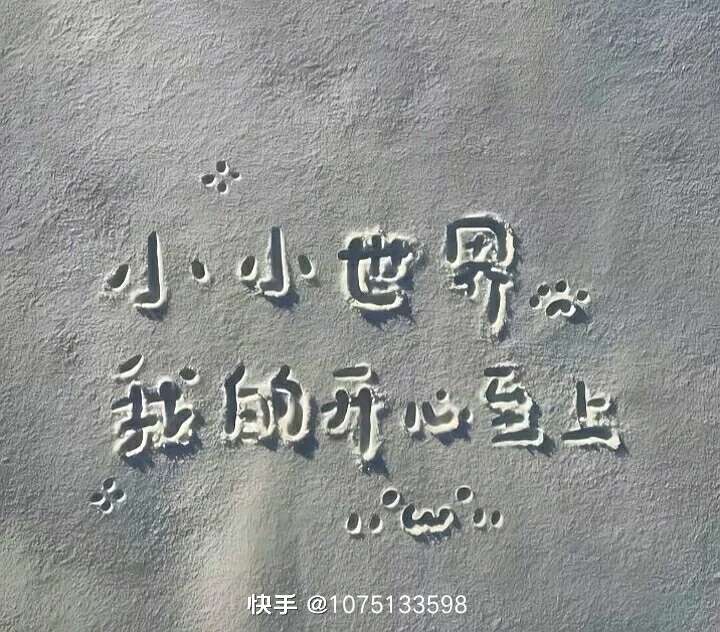 小小世界
我的开心至上
快手 @1075133598